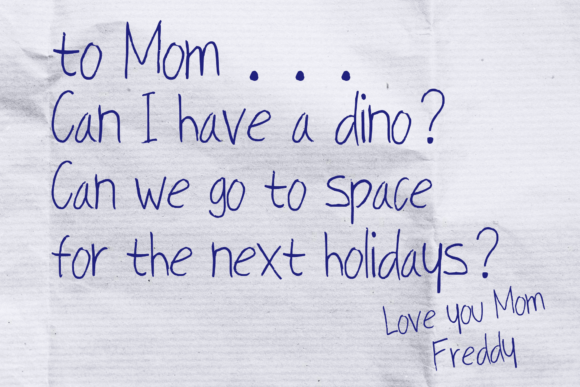 to Mom . . .
Can I have a dino?
Can we go to space
for the next holidays?
Love you Mom
Freddy